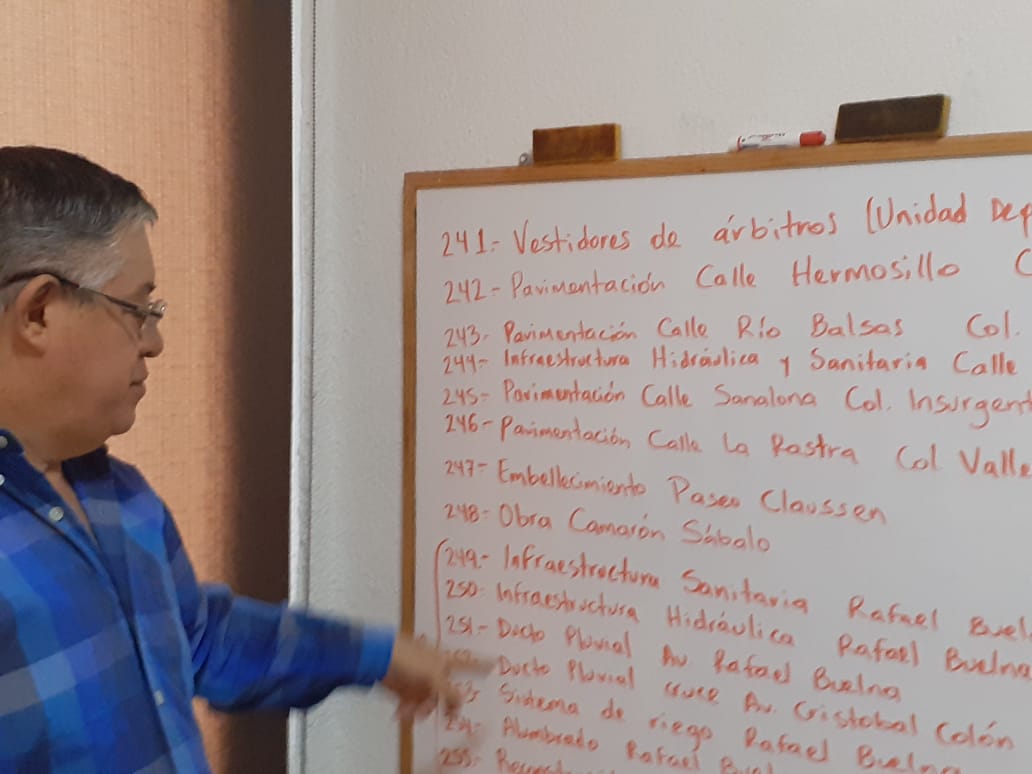 241.- Vestidores de árbitros (Unidad Dep
242- Pavimentación Calle Hermosillo C
243- Pavimentación Calle Río Balsas Col.
244- Infraestructura Hidráulica y Sanitaria Calle
245- Pavimentación Calle Sanalona Col. Insurgent
246- Pavimentación Calle La Rastra Col Valle
247- Embellecimiento Paseo Claussen
248- Obra Camarón Sábalo
249- Infraestructura Sanitaria Rafael Buel
250- Infraestructura Hidráulica Rafael Buelna
251- Ducto Pluvial Av. Rafael Buelna
Ducto Pluvial cruce Av. Cristobal Colón
Sistema de riego Rafael Buelna
254- Alumbrado Rafael Buel
255-